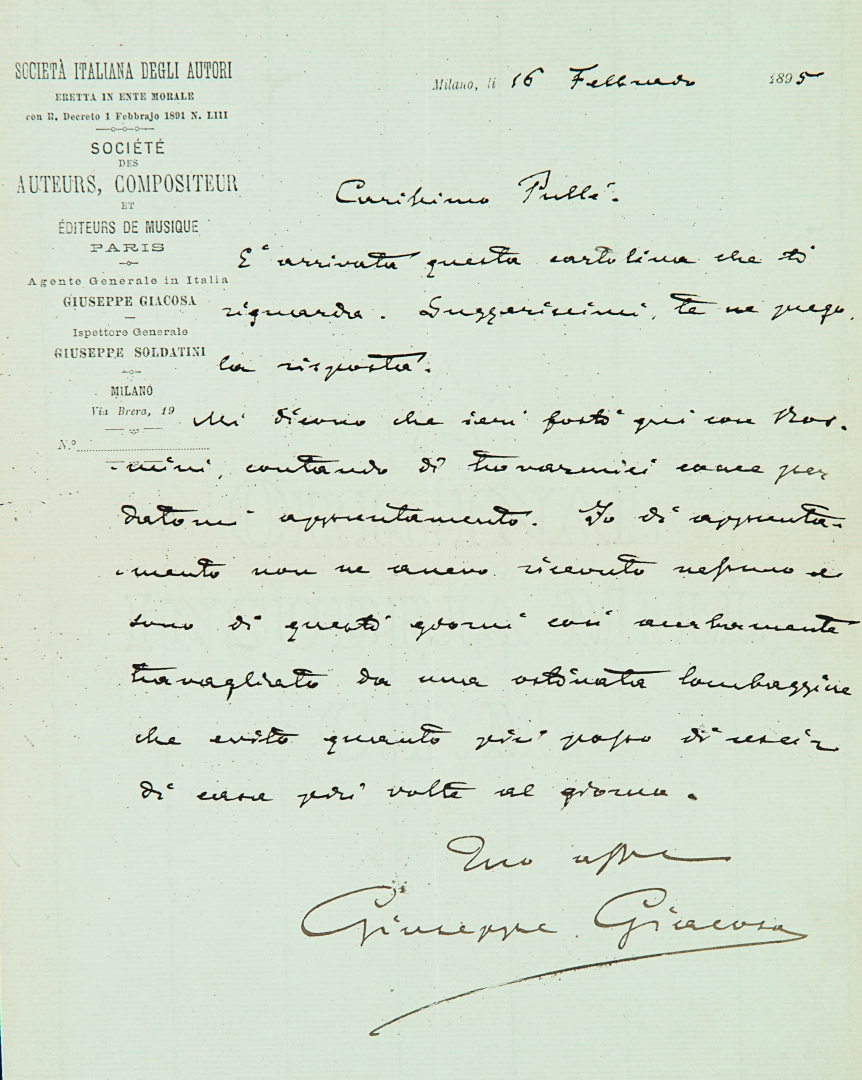 SOCIETÀ ITALIANA DEGLI AUTORI
ERETTA IN ENTE MORALE
con R. Decreto 1 Febbrajo 1891 N. LIII
SOCIÉTÉ
DES
AUTEURS, COMPOSITEUR
ET
ÉDITEURS DE MUSIQUE
PARIS
Agente Generale in Italia
GIUSEPPE GIACOSA
Ispettore Generale
GIUSEPPE SOLDATINI
MILANO
Via Brera, 19
N.°
Milano, li 16 Febbraio 1895
Carissimo Pullè.
E' arrivata questa cartolina che ti
riguarda. Suggeriscimi, te ne prego,
la risposta.
Mi dicono che ieri fosti qui con
contando di trovarmici come per
datomi appuntamento. Io di appunta-
mento non ne avevo ricevuto nessuno e
sono di questi giorni così acerbamente
travagliato da una ostinata lombaggine
che evito quanto più posso di uscir
di casa più volte al giorno.
Tuo affmo
Giuseppe Giacosa